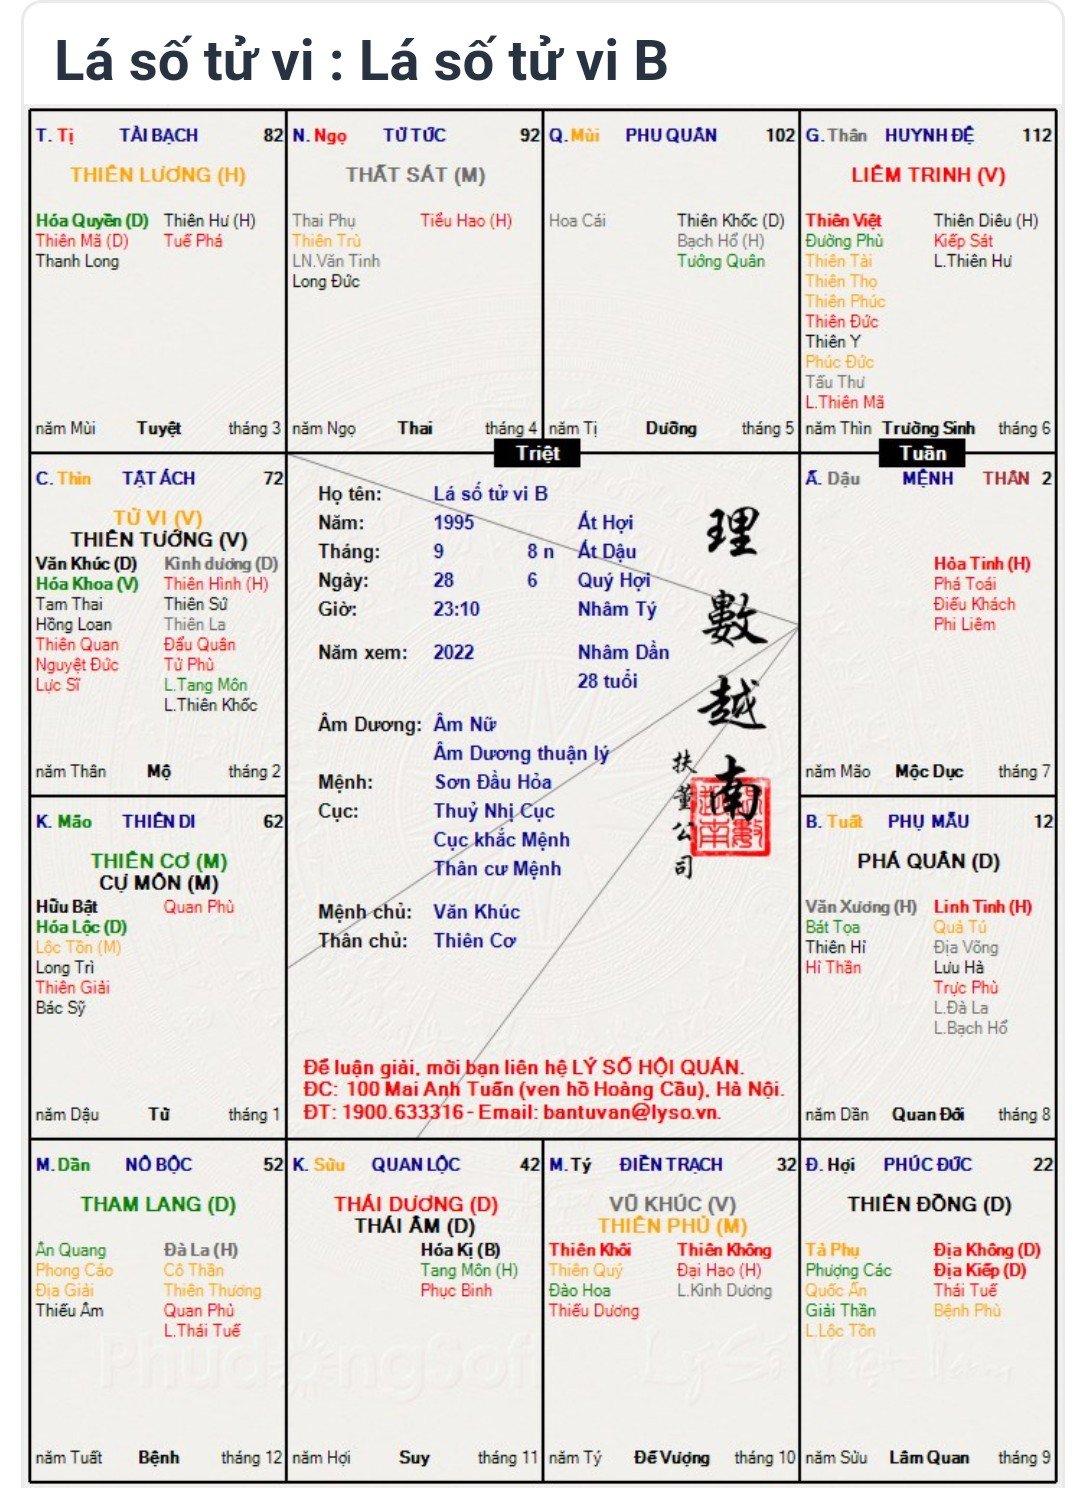 Lá số tử vi : Lá số tử vi B
T. Tị TÀI BẠCH 82
THIÊN LƯƠNG (H)
Hóa Quyền (D) Thiên Hư (H)
Thiên Mã (D) Tuế Phá
Thanh Long
năm Mùi Tuyệt tháng 3
N. Ngọ TỬ TỨC 92
THẤT SÁT (M)
Thai Phụ Tiểu Hao (H)
Thiên Trù
LN.Văn Tinh
Long Đức
năm Ngọ Thai tháng 4
Q. Mùi PHU QUÂN 102
Hoa Cái Thiên Khốc (D)
Bạch Hổ (H)
Tướng Quân
năm Tị Dưỡng tháng 5
G. Thân HUYNH ĐỆ 112
LIÊM TRINH (V)
Thiên Việt Thiên Diêu (H)
Đường Phù Kiếp Sát
Thiên Tài L.Thiên Hư
Thiên Thọ
Thiên Phúc
Thiên Đức
Thiên Y
Phúc Đức
Tấu Thư
L.Thiên Mã
năm Thìn Trường Sinh tháng 6
Triệt
Tuần
C. Thìn TẬT ÁCH 72
TỬ VI (V)
THIÊN TƯỚNG (V)
Văn Khúc (D) Kình dương (D)
Hóa Khoa (V) Thiên Hình (H)
Tam Thai Thiên Sứ
Hồng Loan Thiên La
Thiên Quan Đẩu Quân
Nguyệt Đức Tử Phù
Lực Sĩ L.Tang Môn
L.Thiên Khốc
năm Thân Mộ tháng 2
Họ tên: Lá số tử vi B
Năm: 1995 Ất Hợi
Tháng: 9 8 n Ất Dậu
Ngày: 28 6 Quý Hợi
Giờ: 23:10 Nhâm Tý
Năm xem: 2022 Nhâm Dần
28 tuổi
Âm Dương: Âm Nữ
Âm Dương thuận lý
Mệnh: Sơn Đầu Hỏa
Cục: Thuỷ Nhị Cục
Cục khắc Mệnh
Thân cư Mệnh
Mệnh chủ: Văn Khúc
Thân chủ: Thiên Cơ
理數越南
扶董公司
Để luận giải, mời bạn liên hệ LÝ SỐ HỘI QUÁN.
ĐC: 100 Mai Anh Tuấn (ven hồ Hoàng Cầu), Hà Nội.
ĐT: 1900.633316 - Email: bantuvan@lyso.vn.
Ấ. Dậu MỆNH THÂN 2
Hỏa Tinh (H)
Phá Toái
Điếu Khách
Phi Liêm
năm Mão Mộc Dục tháng 7
K. Mão THIÊN DI 62
THIÊN CƠ (M)
CỰ MÔN (M)
Hữu Bật Quan Phù
Hóa Lộc (D)
Lộc Tồn (M)
Long Trì
Thiên Giải
Bác Sỹ
năm Dậu Tử tháng 1
B. Tuất PHỤ MẪU 12
PHÁ QUÂN (D)
Văn Xương (H) Linh Tinh (H)
Bát Tọa Quả Tú
Thiên Hỉ Địa Võng
Hỉ Thần Lưu Hà
Trực Phù
L.Đà La
L.Bạch Hổ
năm Dần Quan Đới tháng 8
M. Dần NÔ BỘC 52
THAM LANG (D)
Ân Quang Đà La (H)
Phong Cáo Cô Thần
Địa Giải Thiên Thương
Thiếu Âm Quan Phủ
L.Thái Tuế
năm Tuất Bệnh tháng 12
K. Sửu QUAN LỘC 42
THÁI DƯƠNG (D)
THÁI ÂM (D)
Hóa Kị (B)
Tang Môn (H)
Phục Binh
năm Hợi Suy tháng 11
M. Tý ĐIỀN TRẠCH 32
VŨ KHÚC (V)
THIÊN PHỦ (M)
Thiên Khôi Thiên Không
Thiên Quý Đại Hao (H)
Đào Hoa L.Kình Dương
Thiếu Dương
năm Tý Đế Vượng tháng 10
Đ. Hợi PHÚC ĐỨC 22
THIÊN ĐỒNG (D)
Tả Phụ Địa Không (D)
Phượng Các Địa Kiếp (D)
Quốc Ấn Thái Tuế
Giải Thần Bệnh Phù
L.Lộc Tồn
năm Sửu Lâm Quan tháng 9